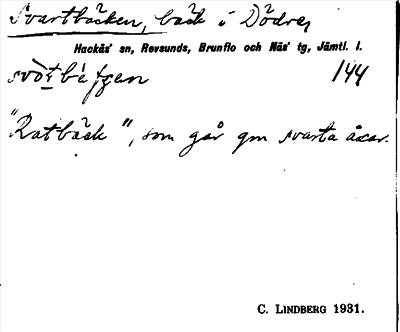 Svartbäcken, bäck i Dödre,
Hackås' sn, Revsunds, Brunflo och Näs' tg, Jämtl. l.
144
"Ratbäck", som går gm svarta åxar.
C. LINDBERG 1931.